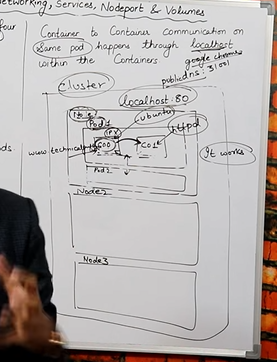 Networking, Services, Nodeport & Volumes
four
Container to Container communication on
Same pod happens through localhost
within the Containers
google chrome
publicdns: 31001
Cluster
localhost:80
ubuntu
Pod1
httpd
C00
C01
It works
Pod2
Node2
Node3